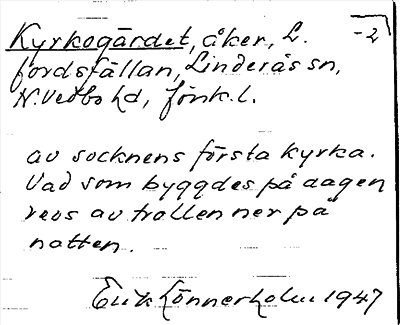 Kyrkogärdet, åker, L. -2
fordsfällan, Linderås sn,
N. Vedbo hd, Jönk. l.
av socknens första kyrka.
Vad som byggdes på dagen
revs av trollen ner på
natten.
Erik Lönnerholm 1947